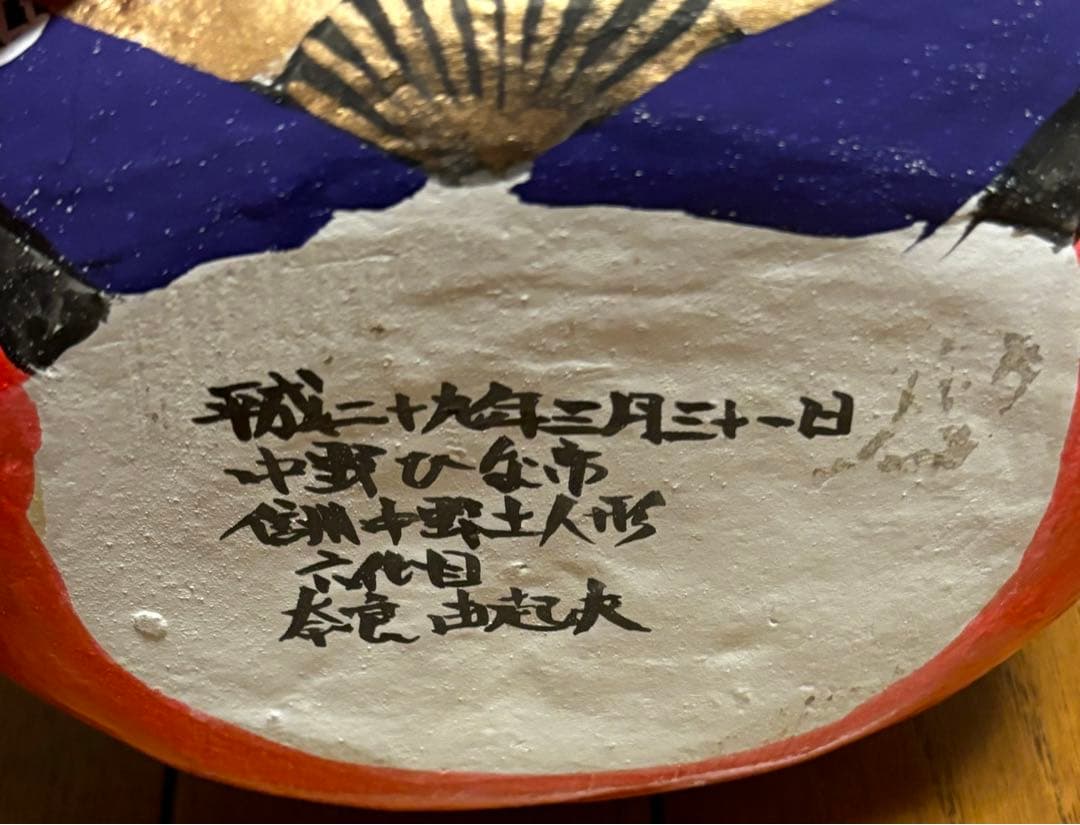 平成二十九年三月三十一日
中野ひな市
信州中野土人形
六代目
奈良 由起夫